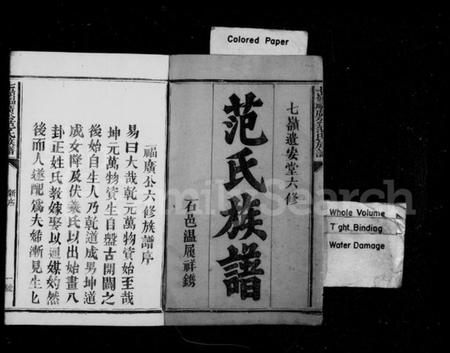 Colored Paper
七嶺遺安堂六修
范氏族譜
石邑温履祥鐫
Whole Volume
Tight Binding
Water Damage
福廣公六修族譜序
易曰大哉乾元萬物資始至哉
坤元萬物資生自盤古開闢之
後始自生人乃乾道成男坤道
成女降及伏羲氏以出始畫八
卦正姓氏教嫁娶以通媒妁然
後而人道配為夫婦漸見生匕
FamilySearch